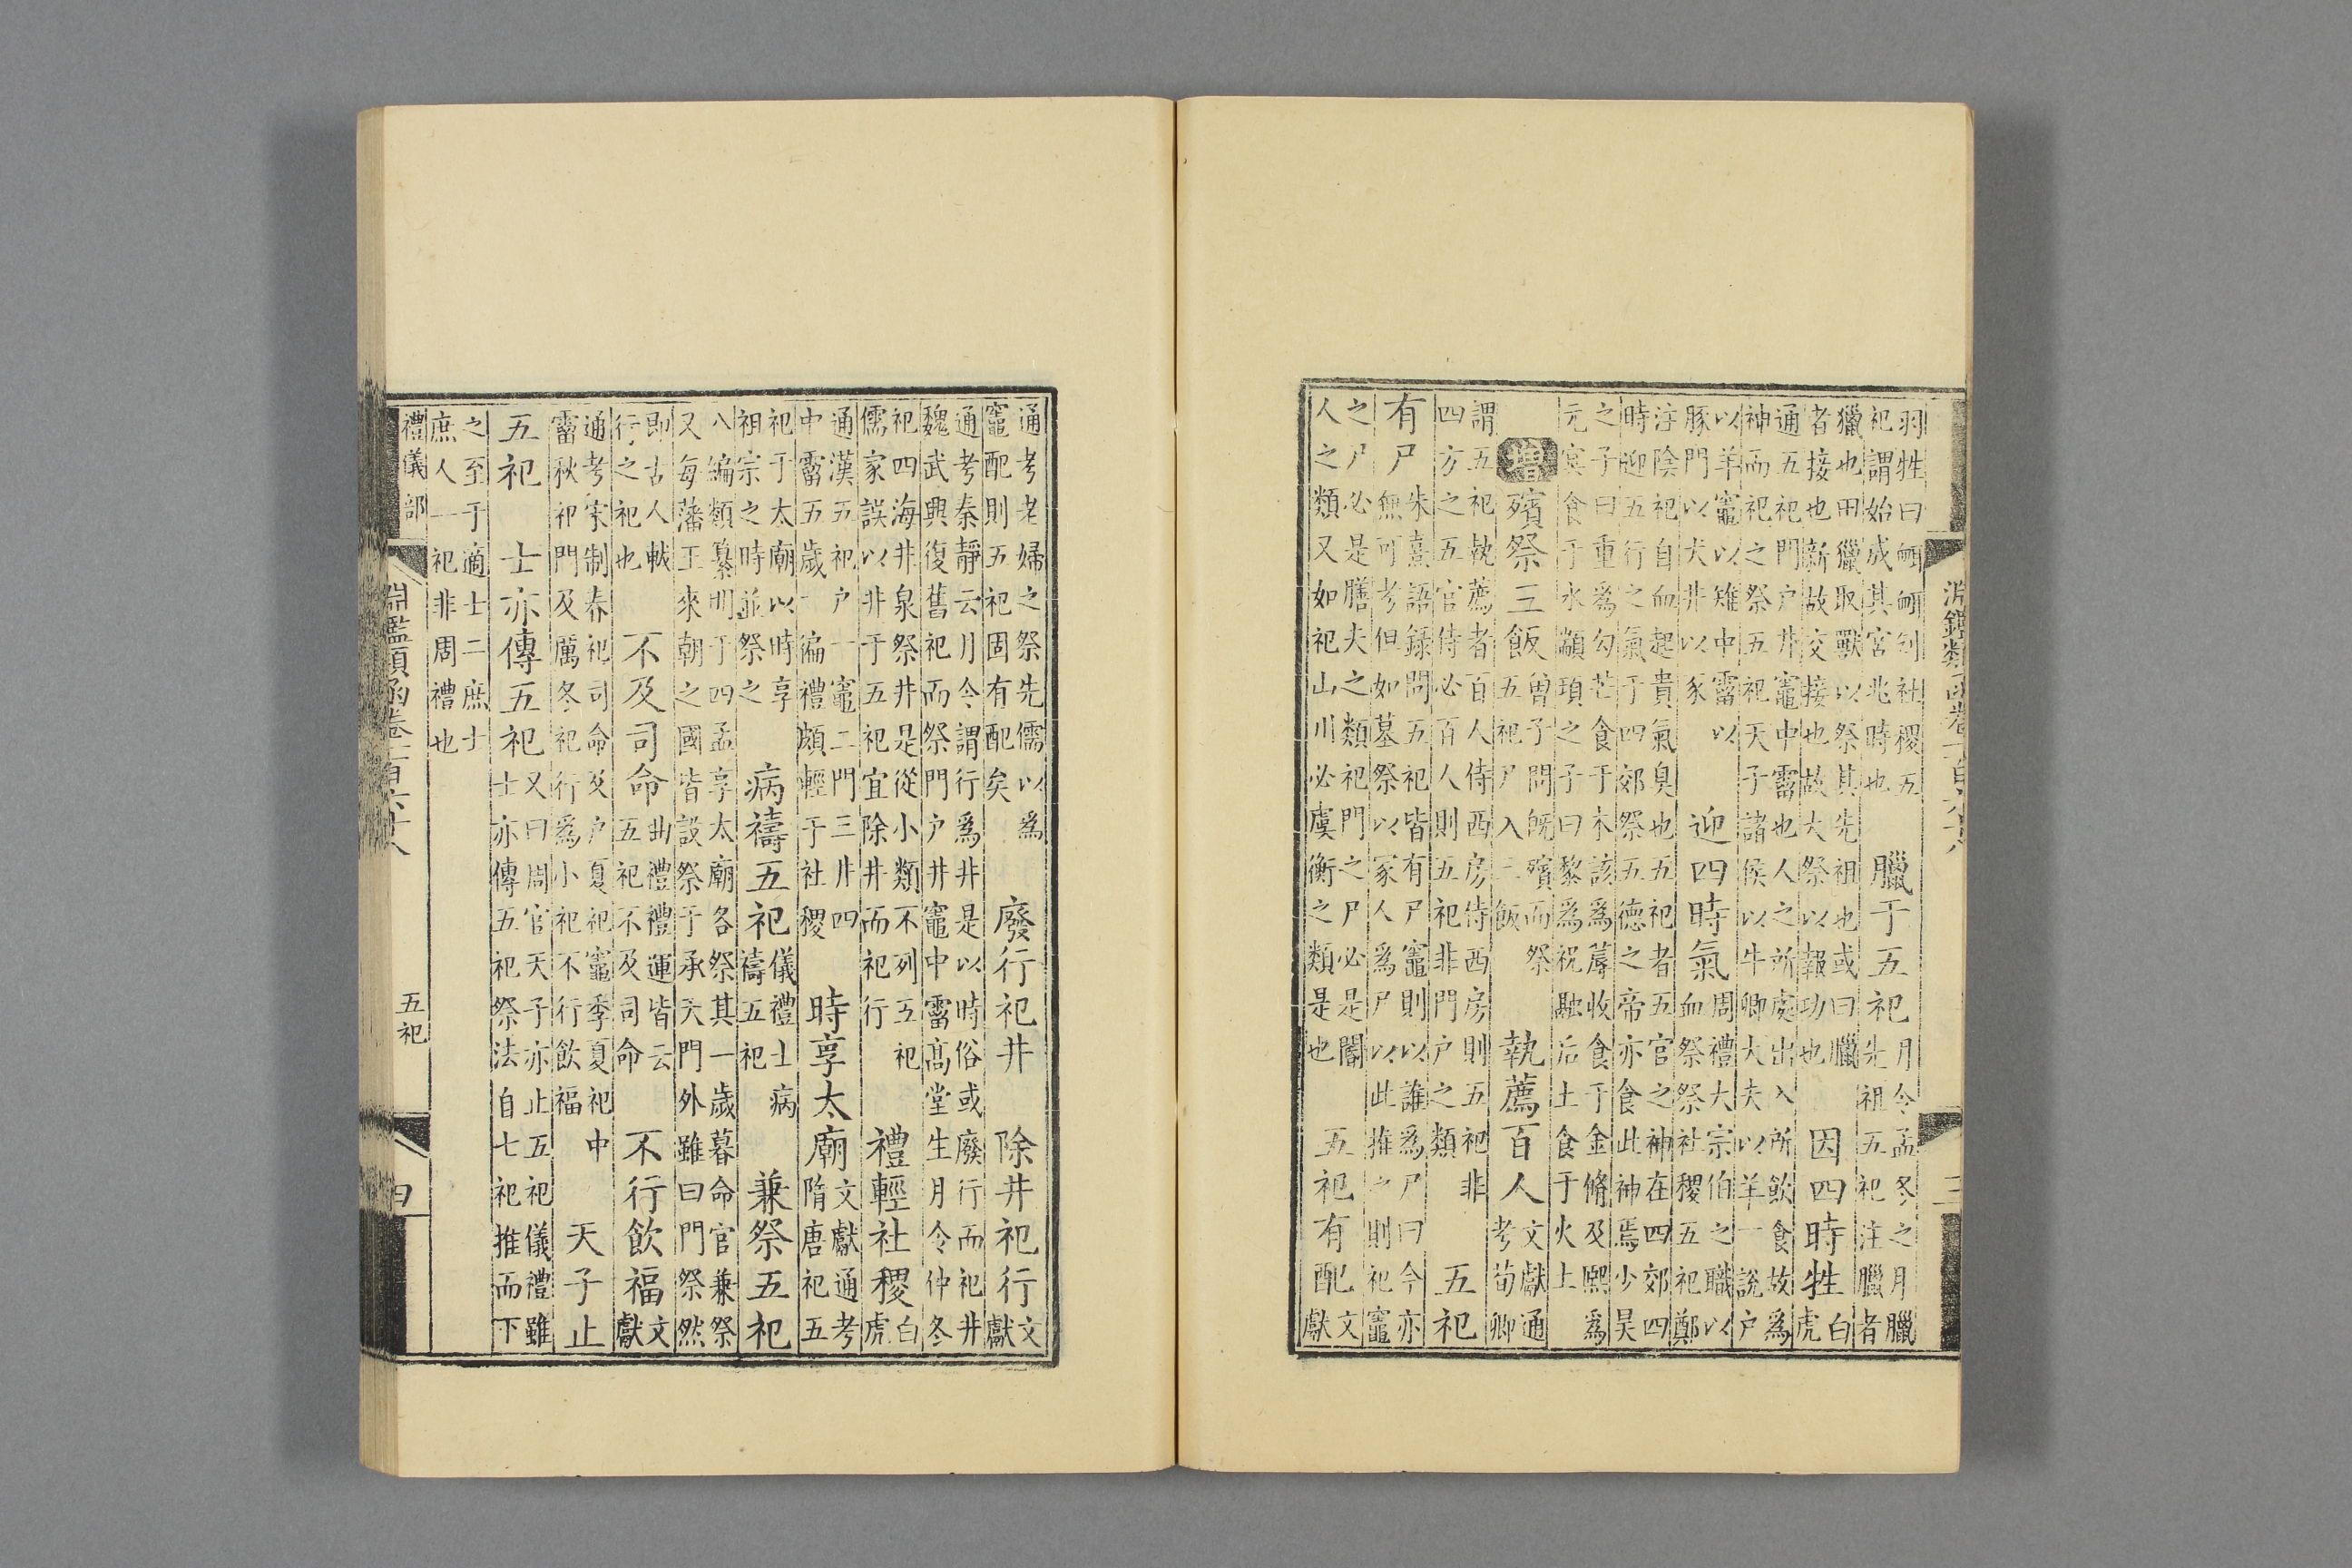 淵鑑類函卷一百六十八 三
羽牲曰衈衈刉社稷五
祀謂始成其宮兆時也
臘于五祀
月令孟冬之月臘
先祖五祀注臘者
獵也田獵取獸以祭其先祖也或曰臘
者接也新故交接也故大祭以報功也
因四時牲
白
虎
通五祀門户井竈中霤也人之所處出入所飲食故爲
神而祀之祭五祀天子諸侯以牛卿大夫以羊一說户
以羊竈以雉中霤以
豚門以犬井以豕
迎四時氣
周禮大宗伯之職以
血祭祭社稷五祀鄭
注陰祀自血起貴氣臭也五祀者五官之神在四郊四
時迎五行之氣于四郊祭五德之帝亦食此神焉少昊
之子曰重爲勾芒食于木該爲蓐收食于金脩及熙爲
元冥食于水顓頊之子曰黎爲祝融后土食于火土
增 殯祭三飯
曾子問既殯而祭
五祀尸入三飯
執薦百人
文獻通
考荀卿
謂五祀執薦者百人侍西房侍西房則五祀非
四方之五官侍必百人則五祀非門户之類
五祀
有尸
朱熹語録問五祀皆有尸竈則以誰爲尸曰今亦
無可考但如墓祭以冢人爲尸以此推之則祀竈
之尸必是膳夫之類祀門之尸必是閽
人之類又如祀山川必虞衡之類是也
五祀有配
文
獻
通考老婦之祭先儒以爲
竈配則五祀固有配矣
廢行祀井 除井祀行
文
獻
通考秦靜云月令謂行爲井是以時俗或廢行而祀井
魏武興復舊祀而祭門户井竈中霤高堂生月令仲冬
祀四海井泉祭井是從小類不列五祀
儒家誤以井于五祀宜除井而祀行
禮輕社稷
白
虎
通漢五祀户一竈二門三井四
中霤五歲一徧禮頗輕于社稷
時享太廟
文獻通考
隋唐祀五
祀于太廟以時享
祖宗之時並祭之
病禱五祀
儀禮士病
禱五祀
兼祭五祀
八編類纂明于四孟享太廟各祭其一歲暮命官兼祭
又每藩王來朝之國皆設祭于承天門外雖曰門祭然
即古人軷
行之祀也
不及司命
曲禮禮運皆云
五祀不及司命
不行飲福
文
獻
通考宋制春祀司命及户夏祀竈季夏祀中
霤秋祀門及厲冬祀行爲小祀不行飲福
天子止
五祀 士亦傳五祀
又曰周官天子亦止五祀儀禮雖
士亦傳五祀祭法自七祀推而下
之至于適士二庶士
庶人一祀非周禮也
禮儀部 淵鑑類函卷一百六十八 五祀